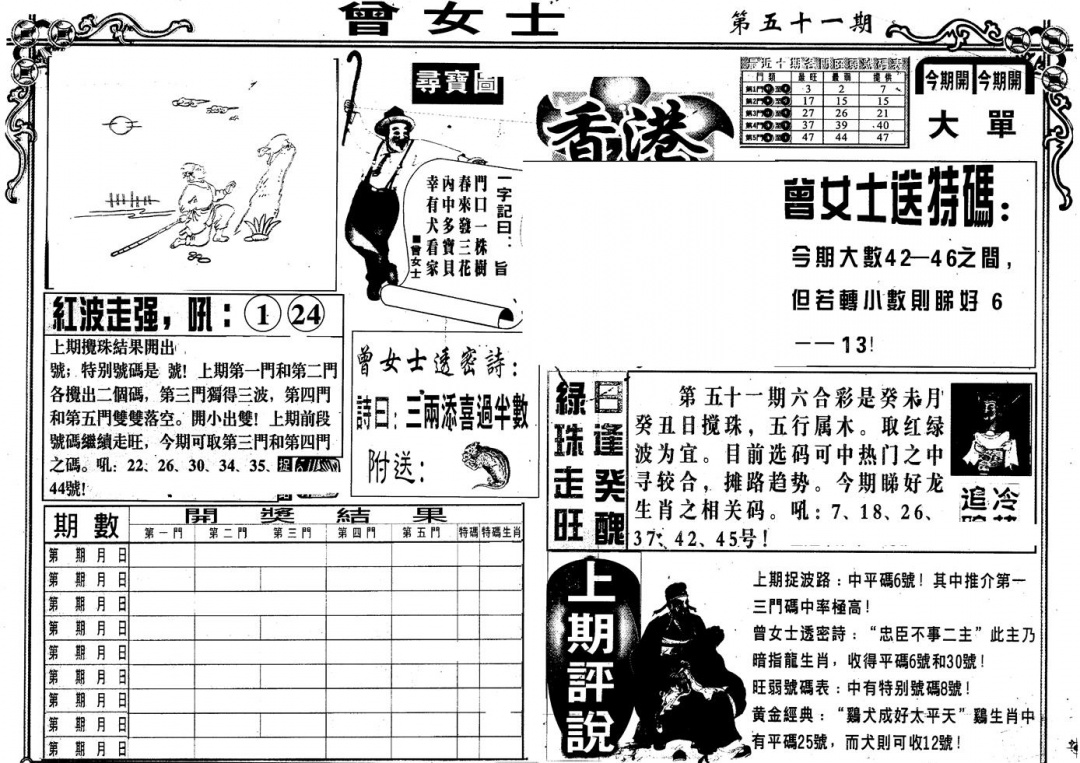 曾女士
第五十一期
尋寶圖
一字記曰：旨
門口一株樹
春來發三花
內中多寶貝
幸有犬看家
曾女士
香港
門類 最旺 最弱 提供
第1門 3 2 7
第2門 17 15 15
第3門 27 26 21
第4門 37 39 40
第5門 47 44 47
今期開 今期開
大 單
曾女士送特碼：
今期大數42—46之間，
但若轉小數則睇好 6
——13！
紅波走强，吼：① ㉔
上期攪珠結果開出
號；特别號碼是 號！上期第一門和第二門
各攪出二個碼，第三門獨得三波，第四門
和第五門雙雙落空。開小出雙！上期前段
號碼繼續走旺，今期可取第三門和第四門
之碼。吼：22、26、30、34、35、
44號！
曾女士透密詩：
詩曰：三兩添喜過半數
附送：
綠珠走旺
日逢癸醜
第五十一期六合彩是癸未月
癸丑日搅珠，五行属木。取红绿
波为宜。目前选码可中热门之中
寻较合，摊路趋势。今期睇好龙
生肖之相关码。吼：7、18、26、
37、42、45号！
追冷
期數 開獎結果
第一門 第二門 第三門 第四門 第五門 特碼 特碼生肖
第 期 月 日
第 期 月 日
第 期 月 日
第 期 月 日
第 期 月 日
第 期 月 日
第 期 月 日
第 期 月 日
第 期 月 日
上期評說
上期捉波路：中平碼6號！其中推介第一
三門碼中率極高！
曾女士透密詩：“忠臣不事二主”此主乃
暗指龍生肖，收得平碼6號和30號！
旺弱號碼表：中有特别號碼8號！
黃金經典：“鷄犬成好太平天”鷄生肖中
有平碼25號，而犬則可收12號！